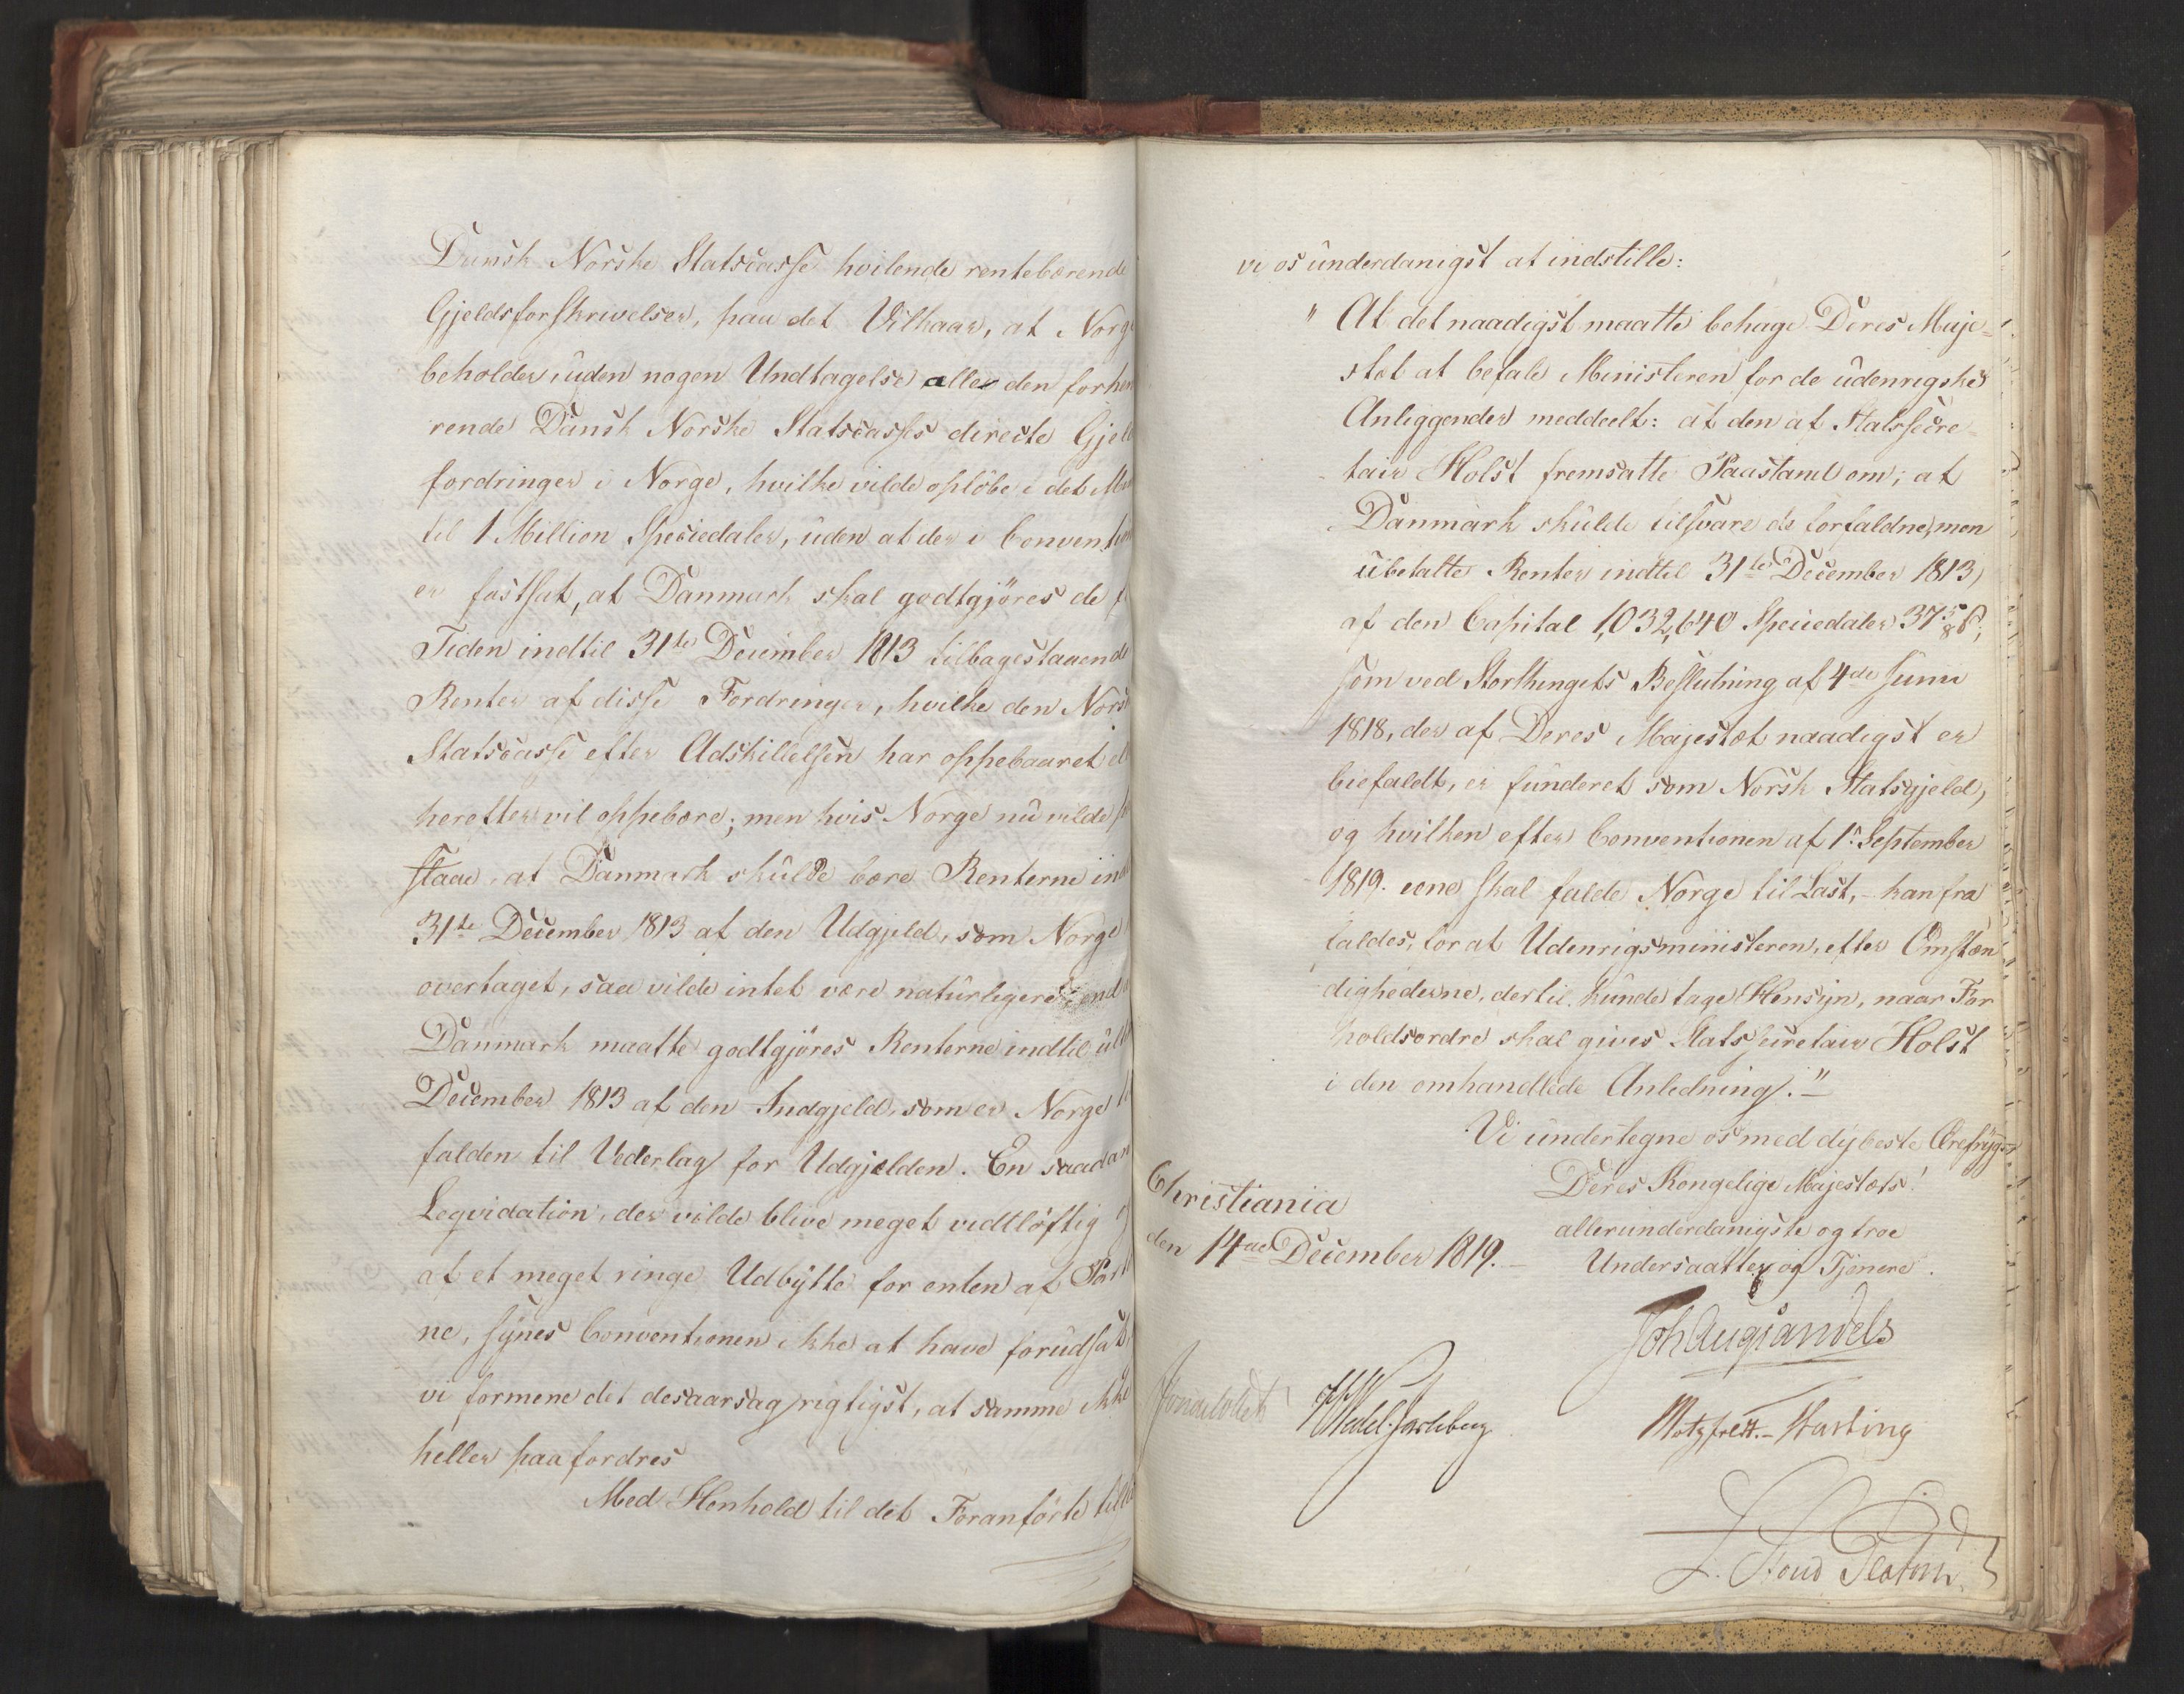 Dansk Norske Statscasse hvilende rentebærende
Gjeldsforskrivelser, paa det Vilkaar, at Norge
beholder, uden nogen Undtagelse alle den forhen
rende Dansk Norske Statscasses directe Gjeld
fordringer i Norge, hvilke vilde opløbe i det
til 1 Million Speciedaler, uden at der i Convention
er fastsat, at Danmark skal godtgjöres de
Tiden indtil 31te December 1813 tilbagestaaende
Renter af disse Fordringer, hvilke den Norsk
Statscasse efter Adskillelsen har oppebaaret
herefter vil oppebære; men hvis Norge nu vilde
staae, at Danmark skulde bære Renterne ind
31te December 1813 af den Udgjeld, som Norge
overtaget, saa vilde intet være naturligere end
Danmark maatte godtgjöres Renterne indtil ult
December 1813 af den Indgjeld, som er Norge
falden til Vederlag for Udgjelden. En saadan
Leqvidation, der vilde blive meget vidtløftig
af et meget ringe Udbytte for enten af Part
ne, synes Conventionen ikke at have forudsat
vi formene det desaarsag rigtigst, at samme ikke
heller paafordres
Med Henhold til det Foranførte
vi os underdanigst at indstille:
" At det naadigst maatte behage Deres Maje-
stæt at befale Ministeren for de udenrigske
Anliggender meddeelt: at den af Statssecre-
tair Holst fremsatte Paastand om, at
Danmark skulde tilsvare de forfaldne, men
ubetalte Renter indtil 31te December 1813,
af den Capital 1,032,640 Speciedaler 37 5/8 ß;
som ved Storthingets Beslutning af 4de Junii
1818, der af Deres Majestæt naadigst er
biefaldt, er funderet som Norsk Statsgjeld,
og hvilken efter Conventionen af 1. September
1819. ene skal falde Norge til Last, - kan fra
faldes, for at Udenrigsministeren, efter Omstæn
dighederne, dertil kunde tage Hensyn, naar For
holdsordre skal gives Statssecretair Holst
i den omhandlede Anledning." -
Vi undertegne os med dybeste Ærefrygt
Deres Kongelige Majestæts!
allerunderdanigste og troe
Undersaatter og Tjenere.
Christiania
den 14de December 1819. -
Joh Aug Sandels
Wedel-Jarlsberg
Motzfeldt. - Hasting
L. Stoud Platou